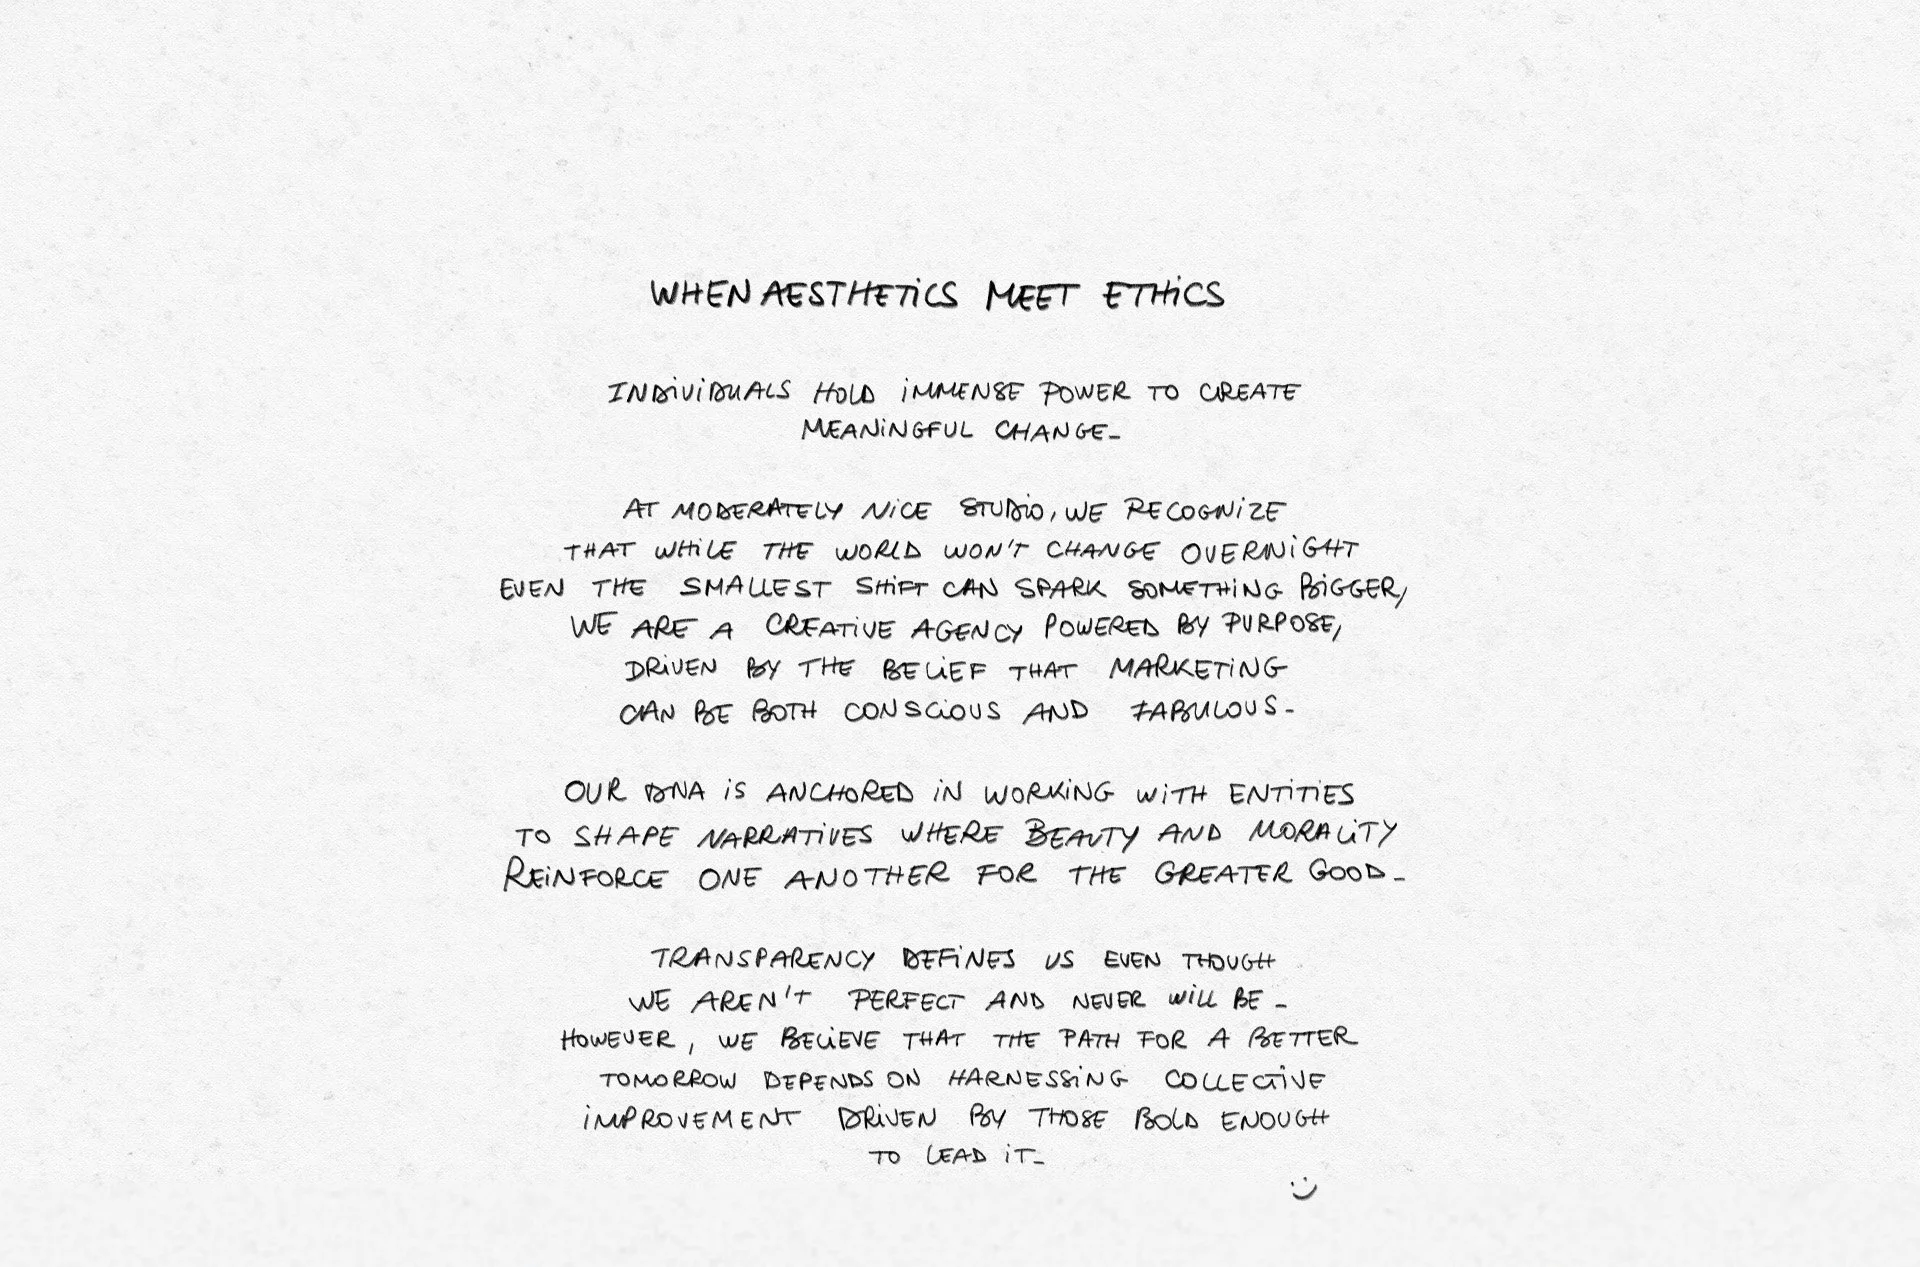 WHEN AESTHETICS MEET ETHICS
INDIVIDUALS HOLD IMMENSE POWER TO CREATE
MEANINGFUL CHANGE_
AT MODERATELY NICE STUDIO, WE RECOGNIZE
THAT WHILE THE WORLD WON'T CHANGE OVERNIGHT
EVEN THE SMALLEST SHIFT CAN SPARK SOMETHING BIGGER,
WE ARE A CREATIVE AGENCY POWERED BY PURPOSE,
DRIVEN BY THE BELIEF THAT MARKETING
CAN BE BOTH CONSCIOUS AND FABULOUS_
OUR DNA IS ANCHORED IN WORKING WITH ENTITIES
TO SHAPE NARRATIVES WHERE BEAUTY AND MORALITY
REINFORCE ONE ANOTHER FOR THE GREATER GOOD_
TRANSPARENCY DEFINES US EVEN THOUGH
WE AREN'T PERFECT AND NEVER WILL BE_
HOWEVER, WE BELIEVE THAT THE PATH FOR A BETTER
TOMORROW DEPENDS ON HARNESSING COLLECTIVE
IMPROVEMENT DRIVEN BY THOSE BOLD ENOUGH
TO LEAD IT_